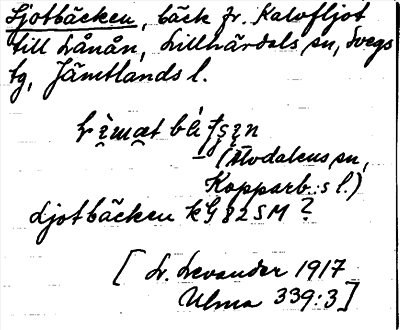 Ljotbäcken, bäck fr. Kalvfljot
till Lånån, Lillhärdals sn, Svegs
tg, Jämtlands l.
(Älvdalens sn,
Kopparb:s l.)
Ljotbäcken kG 82 SM ?
[ L. Levander 1917
Ulma 339:3 ]